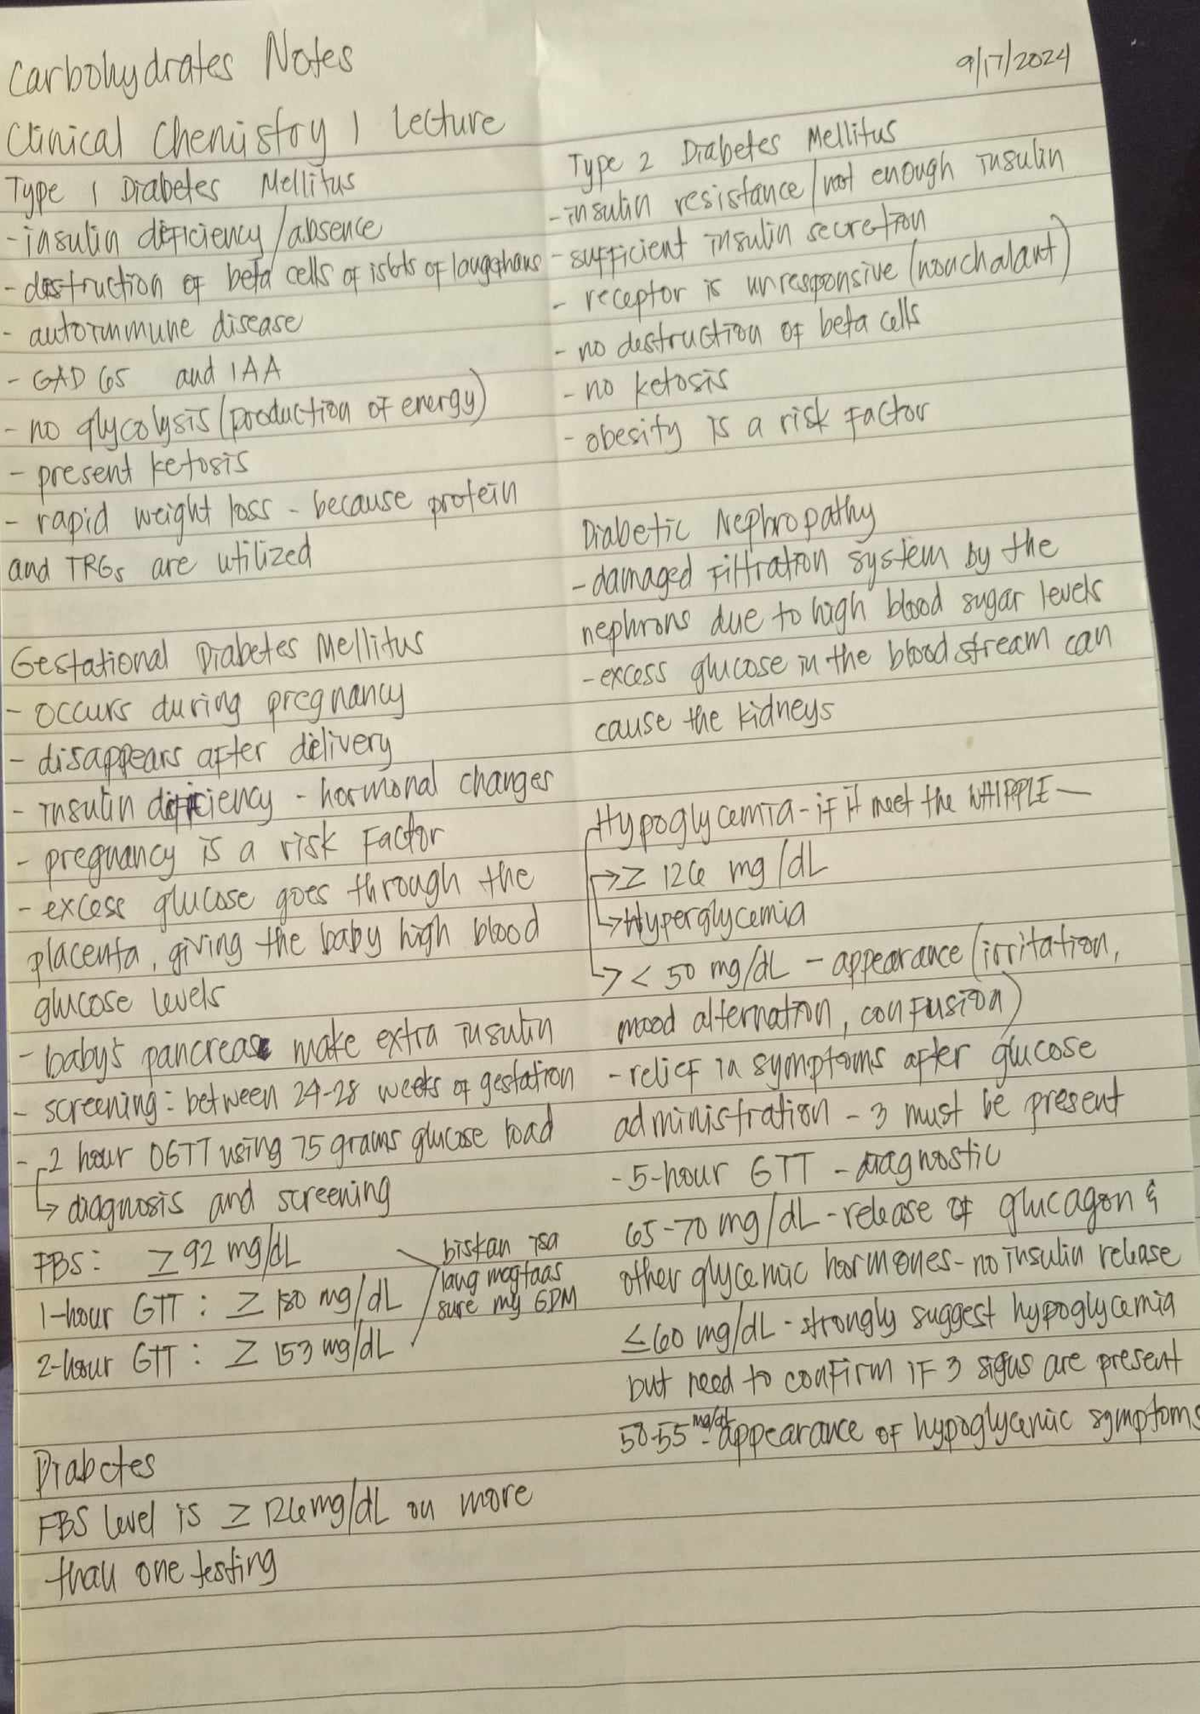 Carbohydrates Notes
9/17/2024
Clinical Chemistry 1 Lecture
Type 1 Diabetes Mellitus
- insulin deficiency/absence
- destruction of beta cells of islets of langerhans
- autoimmune disease
- GAD 65 and IAA
- no glycolysis (production of energy)
- present ketosis
- rapid weight loss - because protein
and TRGs are utilized
Gestational Diabetes Mellitus
- occurs during pregnancy
- disappears after delivery
- insulin deficiency - hormonal changes
- pregnancy is a risk factor
- excess glucose goes through the
placenta, giving the baby high blood
glucose levels
- baby's pancreas make extra insulin
- screening: between 24-28 weeks of gestation
- 2 hour OGTT using 75 grams glucose load
↳ diagnosis and screening
FBS: ≥ 92 mg/dL
1-hour GTT: ≥ 180 mg/dL
2-hour GTT: ≥ 153 mg/dL
biskan isa
lang magtaas
sure my GDM
Diabetes
FBS level is ≥ 126 mg/dL on more
than one testing
Type 2 Diabetes Mellitus
- insulin resistance/not enough insulin
- sufficient insulin secretion
- receptor is unresponsive (nonchalant)
- no destruction of beta cells
- no ketosis
- obesity is a risk factor
Diabetic Nephropathy
- damaged filtration system by the
nephrons due to high blood sugar levels
- excess glucose in the bloodstream can
cause the kidneys
Hypoglycemia - if it meet the WHIPPLE —
→ ≥ 126 mg/dL
↳ Hyperglycemia
→ < 50 mg/dL - appearance (irritation,
mood alternation, confusion)
- relief in symptoms after glucose
administration - 3 must be present
- 5-hour GTT - diagnostic
65-70 mg/dL - release of glucagon &
other glycemic hormones - no insulin release
≤ 60 mg/dL - strongly suggest hypoglycemia
but need to confirm if 3 signs are present
50-55 mg/dL - appearance of hypoglycemic symptoms